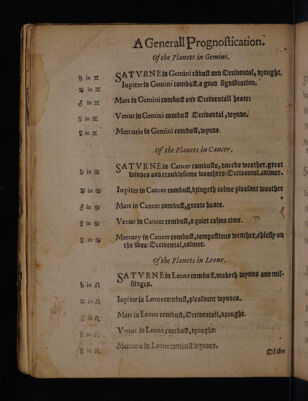 A Generall Prognostication.
Of the Planets in Gemini.
♄ in ♊ SATVRNE in Gemini cõbust and Occidental, drought.
♃ in ♊ Iupiter in Gemini combust a good signification.
♂ in ♊ Mars in Gemini combust and Occidentall heate:
♀ in ♊ Venus in Gemini combust Occidental, wynde.
☿ in ♊ Mercurie in Gemini combust, wynde.
Of the Planets in Cancer.
♄ in ♋ SATVRNE in Cancer combuste, darcke weather, great
windes and troublesome weathers: Occidental, calmer.
♃ in ♋ Iupiter in Cancer combust, bringeth calme pleasant weather
♂ in ♋ Mars in Cancer combust, greate heate.
♀ in ♋ Venus in Cancer combust, a quiet calme time.
☿ in ♋ Mercury in Cancer combust, tempestious weather, chiefly on
the sea: Occidental, calmer.
Of the Planets in Leone.
♄ in ♌ SATVRNE in Leone combust, maketh wynds and mis-
slinges.
♃ in ♌ Iupiter in Leone combust, pleasaunt wyndes.
♂ in ♌ Mars in Leone combust, Occidentall, drought.
♀ in ♌ Venus in Leone combust, drought:
☿ in ♌ Mercurie in Leone combust wyndes.
Of the